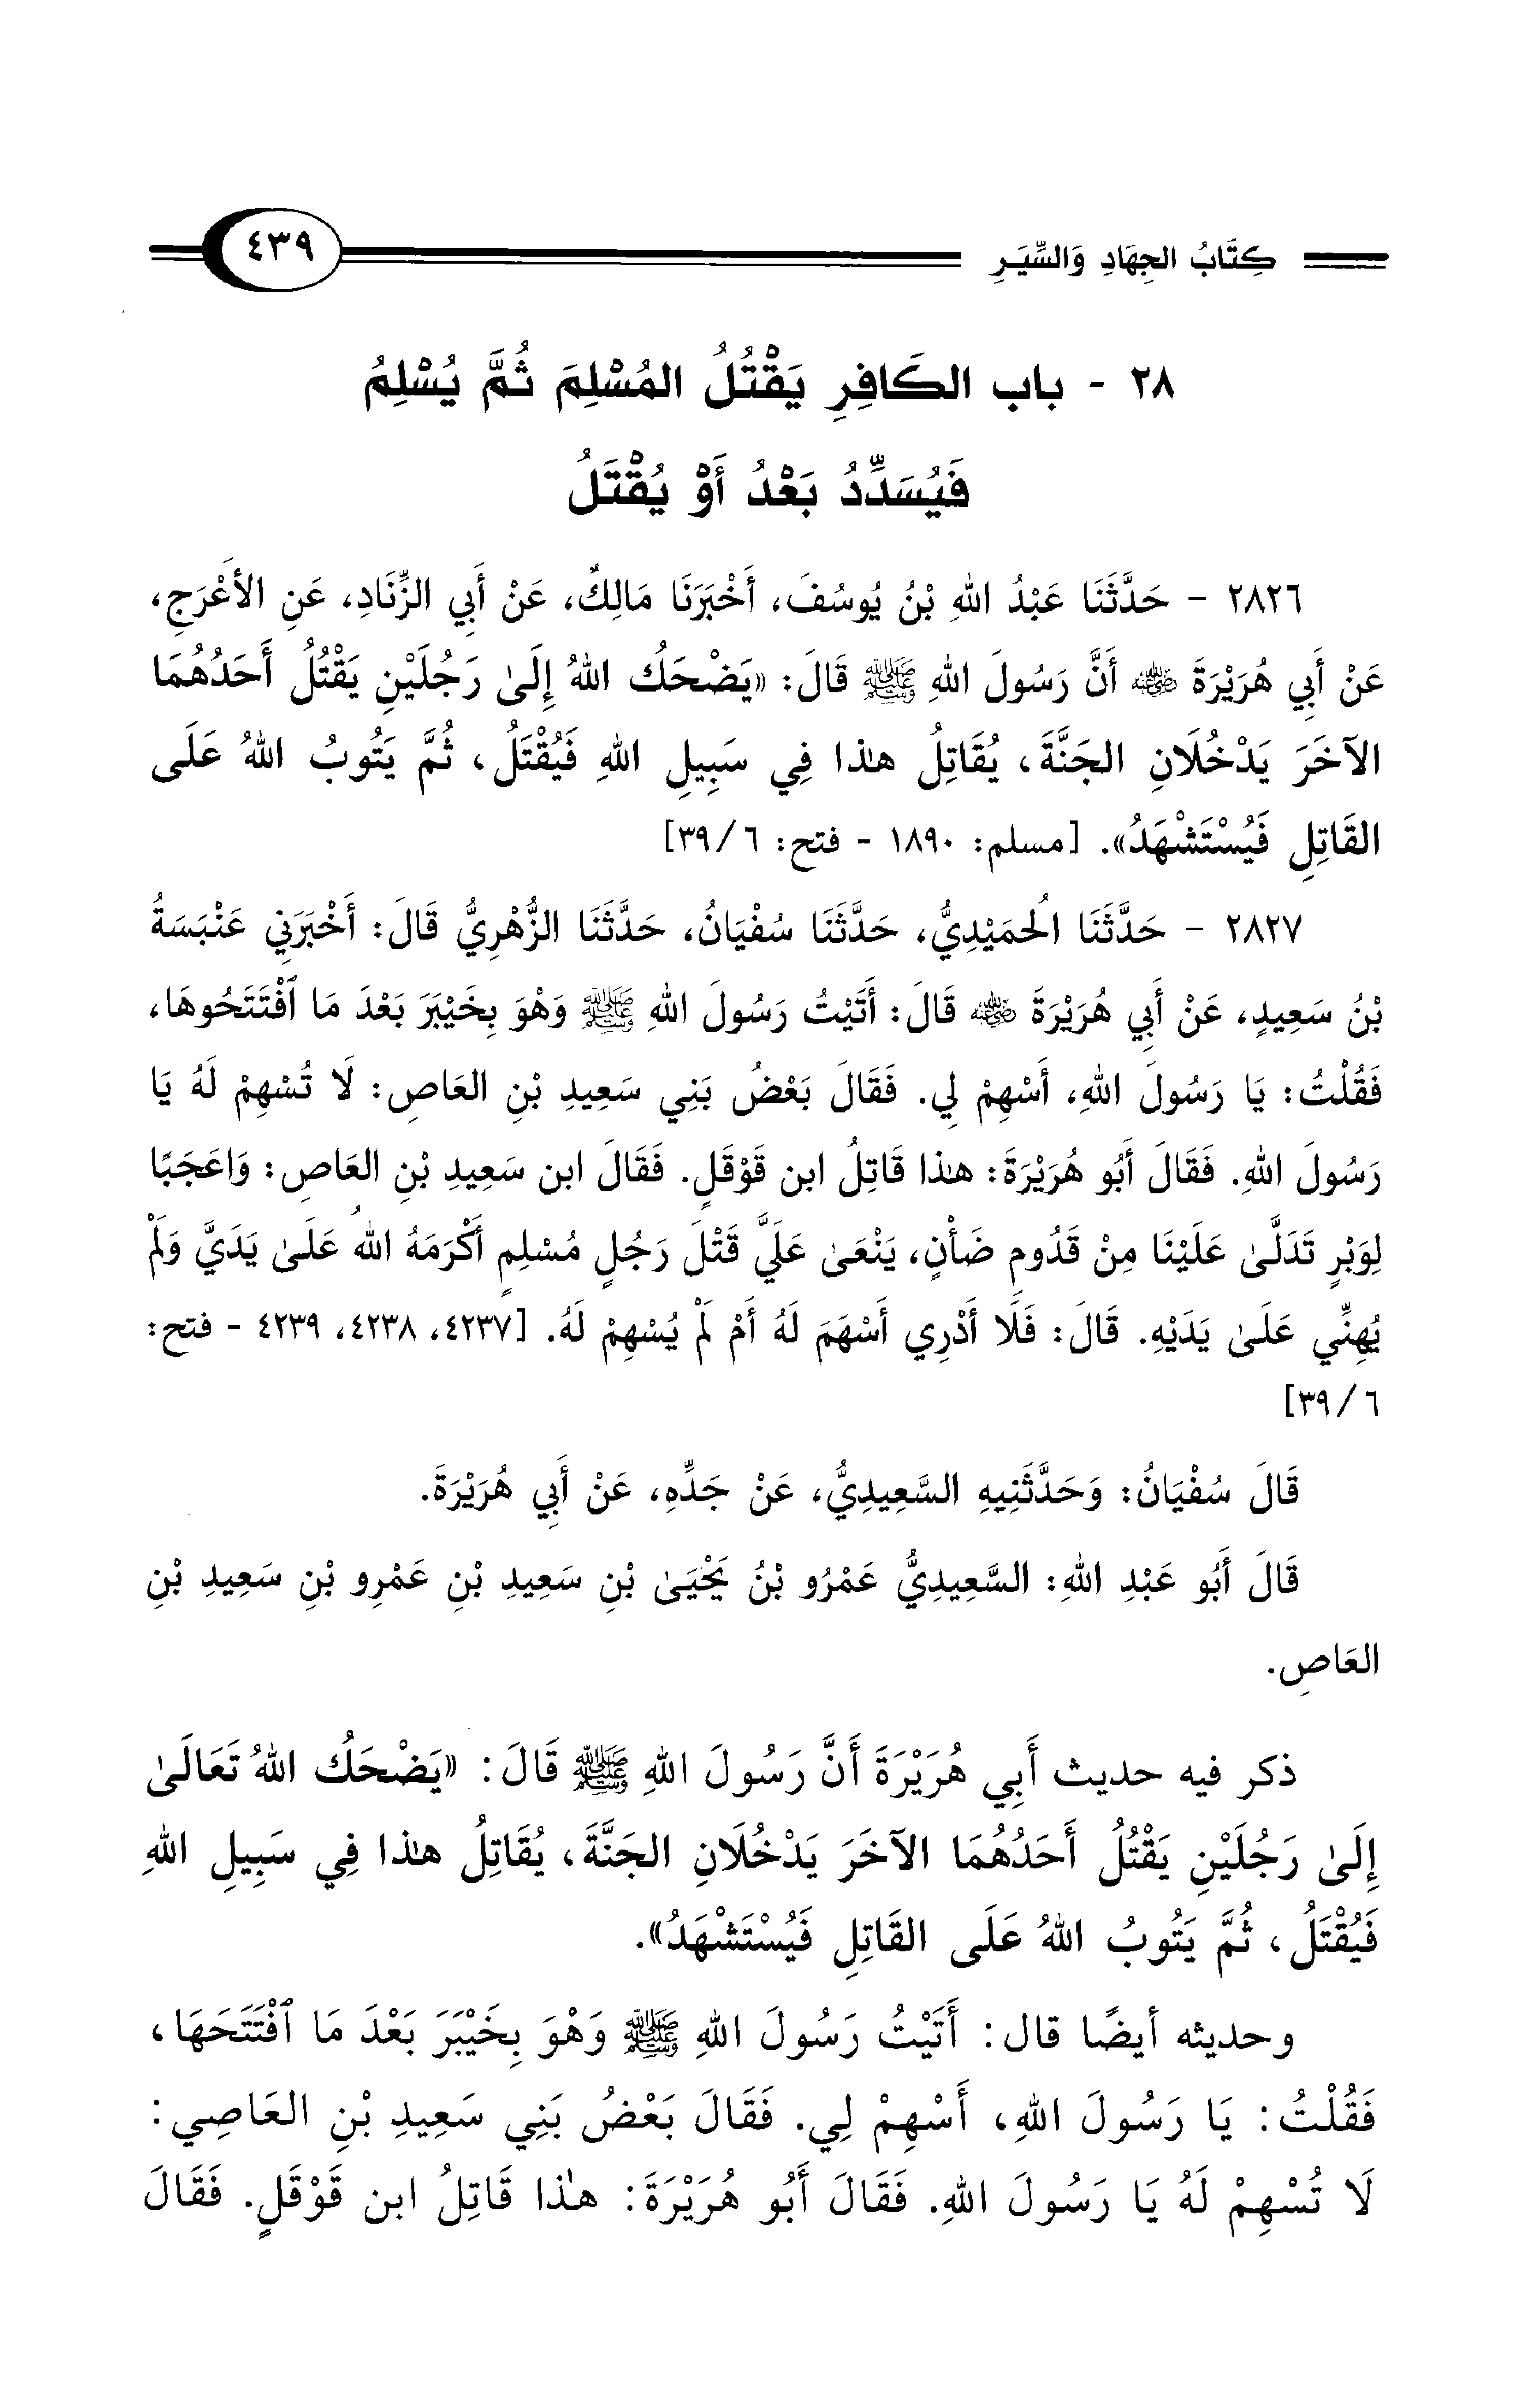 كِتَابُ الجِهَادِ وَالسِّيَرِ
٤٣٩
٢٨ - باب الكَافِرِ يَقْتُلُ المُسْلِمَ ثُمَّ يُسْلِمُ
فَيُسَدِّدُ بَعْدُ أَوْ يُقْتَلُ
٢٨٢٦ - حَدَّثَنَا عَبْدُ اللهِ بْنُ يُوسُفَ، أَخْبَرَنَا مَالِكٌ، عَنْ أَبِي الزِّنَادِ، عَنِ الأَعْرَجِ،
عَنْ أَبِي هُرَيْرَةَ رضي الله عنه أَنَّ رَسُولَ اللهِ ﷺ قَالَ: «يَضْحَكُ اللهُ إِلَىٰ رَجُلَيْنِ يَقْتُلُ أَحَدُهُمَا
الآخَرَ يَدْخُلَانِ الجَنَّةَ، يُقَاتِلُ هٰذا فِي سَبِيلِ اللهِ فَيُقْتَلُ، ثُمَّ يَتُوبُ اللهُ عَلَى
القَاتِلِ فَيُسْتَشْهَدُ». [مسلم: ١٨٩٠ - فتح: ٣٩/٦]
٢٨٢٧ - حَدَّثَنَا الُحمَيْدِيُّ، حَدَّثَنَا سُفْيَانُ، حَدَّثَنَا الزُّهْرِيُّ قَالَ: أَخْبَرَنِي عَنْبَسَةُ
بْنُ سَعِيدٍ، عَنْ أَبِي هُرَيْرَةَ رضي الله عنه قَالَ: أَتَيْتُ رَسُولَ اللهِ ﷺ وَهْوَ بِخَيْبَرَ بَعْدَ مَا ٱفْتَتَحُوهَا،
فَقُلْتُ: يَا رَسُولَ اللهِ، أَسْهِمْ لِي. فَقَالَ بَعْضُ بَنِي سَعِيدِ بْنِ العَاصِ: لَا تُسْهِمْ لَهُ يَا
رَسُولَ اللهِ. فَقَالَ أَبُو هُرَيْرَةَ: هٰذا قَاتِلُ ابن قَوْقَلٍ. فَقَالَ ابن سَعِيدِ بْنِ العَاصِ: وَاعَجَبًا
لِوَبْرٍ تَدَلَّىٰ عَلَيْنَا مِنْ قَدُومِ ضَأْنٍ، يَنْعَىٰ عَلَيَّ قَتْلَ رَجُلٍ مُسْلِمٍ أَكْرَمَهُ اللهُ عَلَىٰ يَدَيَّ وَلَمْ
يُهِنِّي عَلَىٰ يَدَيْهِ. قَالَ: فَلَا أَدْرِي أَسْهَمَ لَهُ أَمْ لَمْ يُسْهِمْ لَهُ. [٤٢٣٧، ٤٢٣٨، ٤٢٣٩ - فتح:
٣٩/٦]
قَالَ سُفْيَانُ: وَحَدَّثَنِيهِ السَّعِيدِيُّ، عَنْ جَدِّهِ، عَنْ أَبِي هُرَيْرَةَ.
قَالَ أَبُو عَبْدِ اللهِ: السَّعِيدِيُّ عَمْرُو بْنُ يَحْيَىٰ بْنِ سَعِيدِ بْنِ عَمْرِو بْنِ سَعِيدِ بْنِ
العَاصِ.
ذكر فيه حديث أَبِي هُرَيْرَةَ أَنَّ رَسُولَ اللهِ ﷺ قَالَ: «يَضْحَكُ اللهُ تَعَالَىٰ
إِلَىٰ رَجُلَيْنِ يَقْتُلُ أَحَدُهُمَا الآخَرَ يَدْخُلَانِ الجَنَّةَ، يُقَاتِلُ هٰذا فِي سَبِيلِ اللهِ
فَيُقْتَلُ، ثُمَّ يَتُوبُ اللهُ عَلَى القَاتِلِ فَيُسْتَشْهَدُ».
وحديثه أيضًا قال: أَتَيْتُ رَسُولَ اللهِ ﷺ وَهْوَ بِخَيْبَرَ بَعْدَ مَا ٱفْتَتَحَهَا،
فَقُلْتُ: يَا رَسُولَ اللهِ، أَسْهِمْ لِي. فَقَالَ بَعْضُ بَنِي سَعِيدِ بْنِ العَاصِي:
لَا تُسْهِمْ لَهُ يَا رَسُولَ اللهِ. فَقَالَ أَبُو هُرَيْرَةَ: هٰذا قَاتِلُ ابن قَوْقَلٍ. فَقَالَ